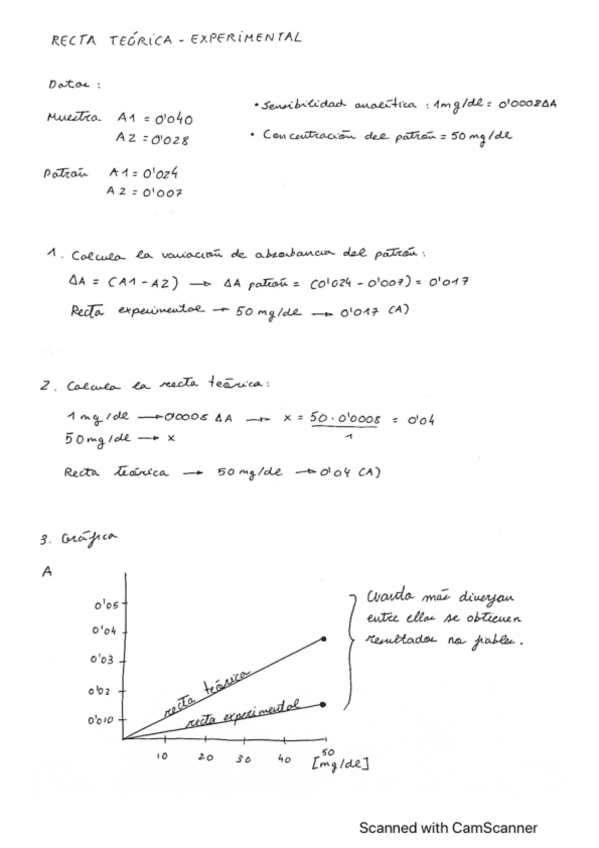 RECTA TEÓRICA - EXPERIMENTAL
Datos :
Muestra A1 = 0'040
A2 = 0'028
• Sensibilidad analítica : 1mg/dl = 0'0008ΔA
• Concentración del patrón = 50 mg/dl
Patrón A1 = 0'024
A2 = 0'007
1. Calcula la variación de absorbancia del patrón:
ΔA = (A1 - A2) → ΔA patrón = (0'024 - 0'007) = 0'017
Recta experimental → 50 mg/dl → 0'017 (A)
2. Calcula la recta teórica:
1 mg/dl → 0'0008 ΔA → x = 50 · 0'0008 / 1 = 0'04
50 mg/dl → x
Recta teórica → 50 mg/dl → 0'04 (A)
3. Gráfica
A
0'05
0'04
0'03
0'02
0'010
recta teórica
recta experimental
10 20 30 40 50
[mg/dl]
Cuando más diverjan
entre ellas se obtienen
resultados no fiables.
Scanned with CamScanner